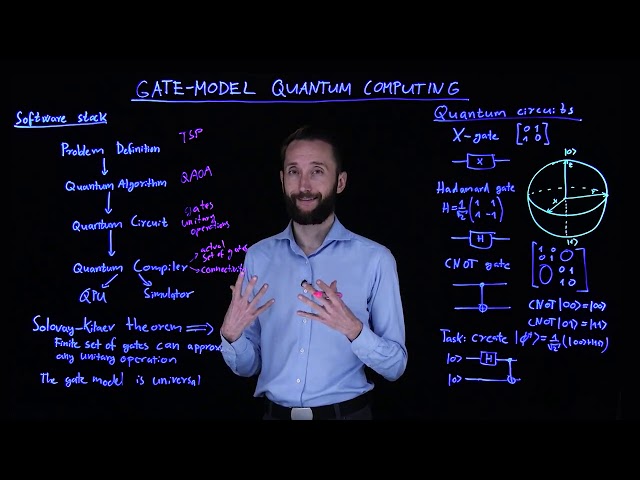 GATE-MODEL QUANTUM COMPUTING
Software stack
TSP
Problem Definition
Quantum Algorithm
QAOA
Quantum Circuit
gates
unitary
operations
Quantum Compiler
actual
set of gates
connectivity
QPU
Simulator
Solovay-Kitaev theorem ⟹
Finite set of gates can approx
any unitary operation
The gate model is universal
Quantum circuits
X-gate [0 1
1 0]
X
|0⟩
Hadamard gate
H=1/√2 (1 1
1 -1)
H
|1⟩
CNOT gate
1 0
0 1
0
0
0 1
1 0
CNOT |00⟩=|00⟩
Task: create |ϕ⁺⟩=1/√2(|00⟩+|11⟩)
|0⟩ H
|0⟩